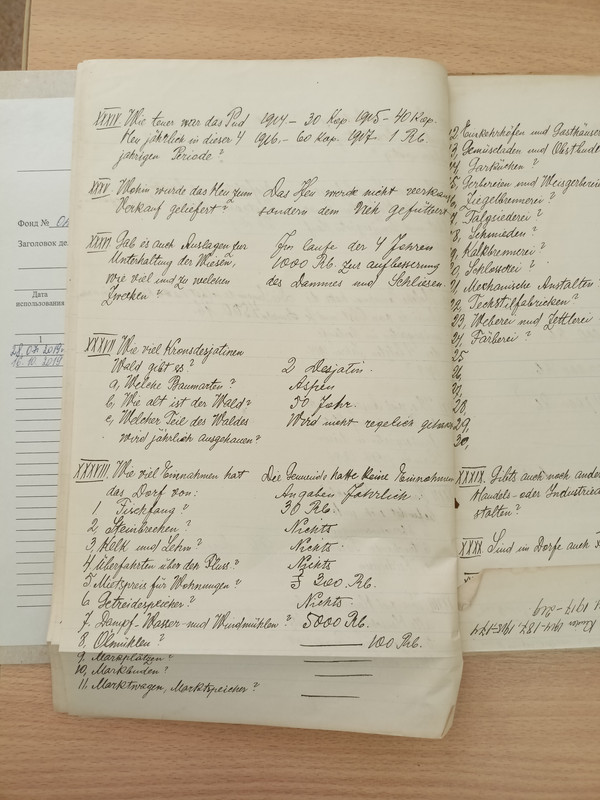 Фонд №
Заголовок де
Дата
использования
1
28.07.2019.
10.10.2019
XXXIV. Wie teuer war das Pud 1914 – 30 Kop. 1915 – 40 Kop.
Heu jährlich in dieser 4 1916 – 60 Kop. 1917 – 1 Rb.
jährigen Periode?
XXXV. Wohin wurde das Heu zum Das Heu werde nicht verkau
Verkauf geliefert? sondern dem Vieh gefüttert
XXXVI. Gab es auch Auslagen zur Im laufe der 4 Jahren
Unterhaltung der Wiesen, 1000 Rb. zur aufbesserung
wie viel und zu welchen des Dammes und Schliesen.
Zwecken?
XXXVII. Wie viel Kronsdesjatinen
Wald gibt es? 2 Desjatin.
a, Welche Baumarten? Aspen
b, Wie alt ist der Wald? 30 Jahr.
c, Welcher Teil des Waldes Wird nicht regelich
wird jährlich ausgehauen?
XXXVIII. Wie viel Einnahmen hat Die Gemeinde hatte kleine Einnahmen
das Dorf von: Angaben Jährlich:
1 Fischfang? 30 Rb.
2 Steinbrechen? Nichts
3, und Lehm? Nichts
4 Überfahrten über den Fluss? Nichts
5 Mietspreis für Wohnungen? 200 Rb.
6 Getreidespeicher? Nichts
7, Dampf- Wasser- und Windmühlen? 5000 Rb.
8, Ölmühlen? 100 Rb.
9, Marktplätzen?
10, Marktbuden?
11, Marktwagen, Marktspeicher?
12, Einkehrhöfen und Gasthäuser
13, Gemüseladen und Obstbude
14, Garküchen?
15, Gerbereien und Weisgerberei
16, Ziegelbrennerei?
17, Talgsiederei?
18, Schmieden?
19, Kalkbrennerei?
20, Schlosserei?
21, Mechanische Anstalten?
22, Textilfabricken?
23, Weberei und Zettlerei
24, Färberei?
25
26,
27,
28,
29,
30,
XXXIX. Gibts auch noch ander
Handels- oder Industriea
stalten?
XXXX. Sind im Dorfe auch